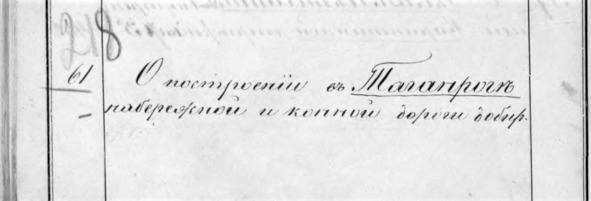 61 О построении въ Таганрогѣ
набережной и конной дороги